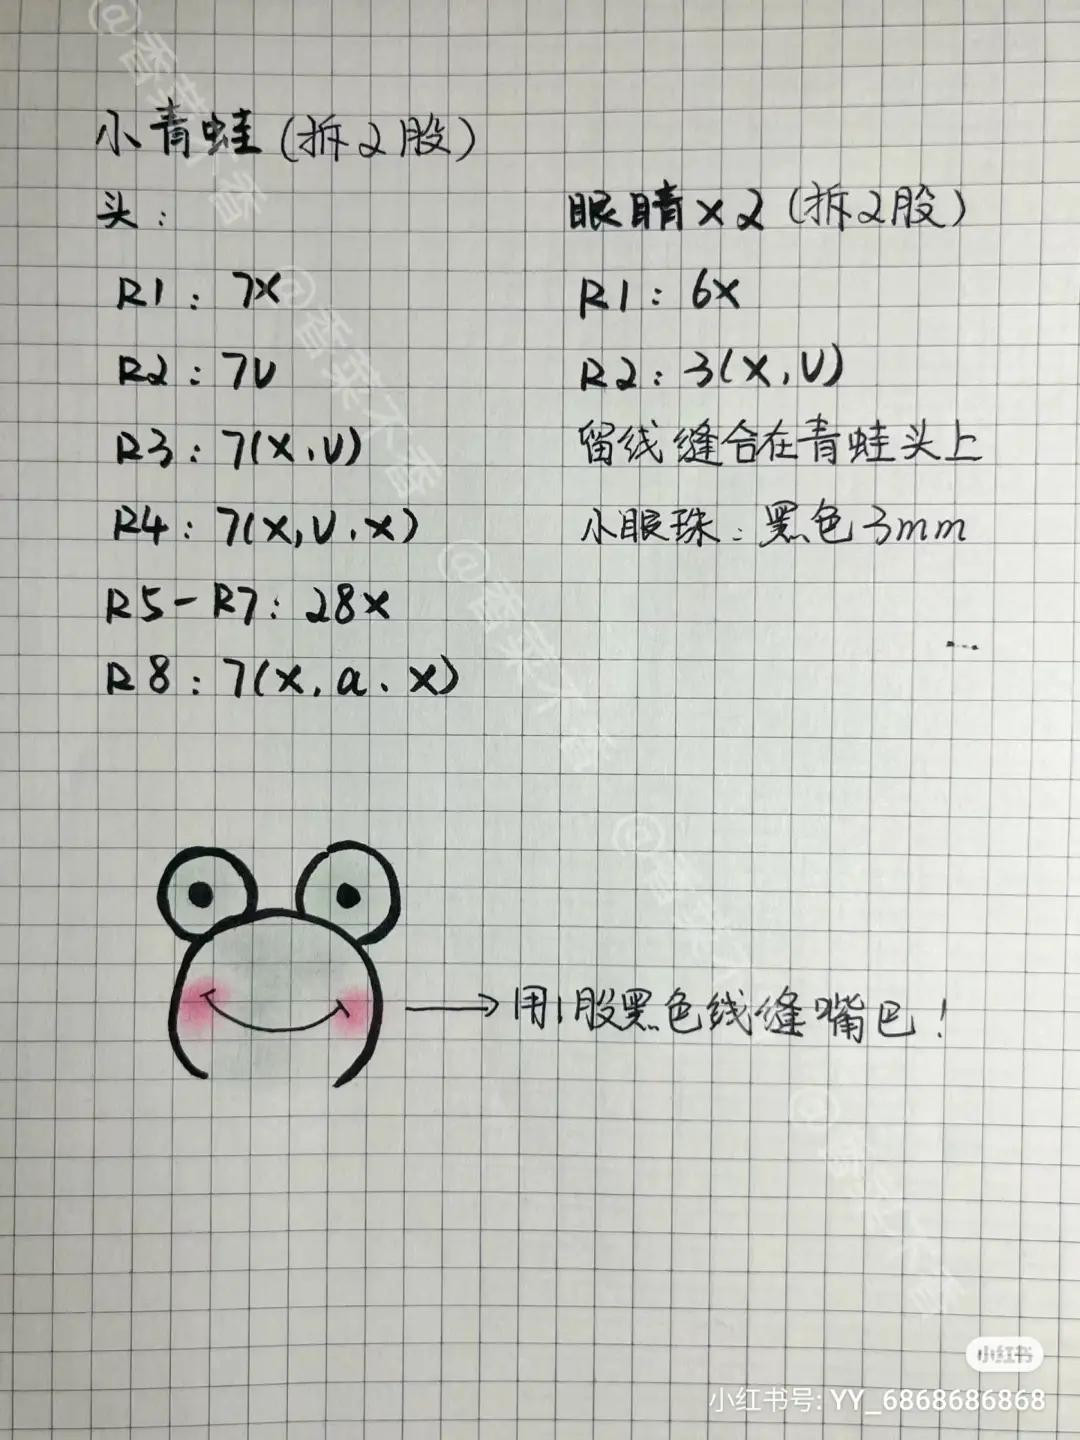 小青蛙(拆2股)
头:
R1: 7X
R2: 7V
R3: 7(X,V)
R4: 7(X,V,X)
R5-R7: 28X
R8: 7(X,a,X)
眼睛×2(拆2股)
R1: 6X
R2: 3(X,V)
留线缝合在青蛙头上
小眼珠:黑色3mm
用1股黑色线缝嘴巴!
@香菜不香
@香菜不香
@香菜不香
@香菜不香
@香菜不香
小红书
小红书号: YY_6868686868